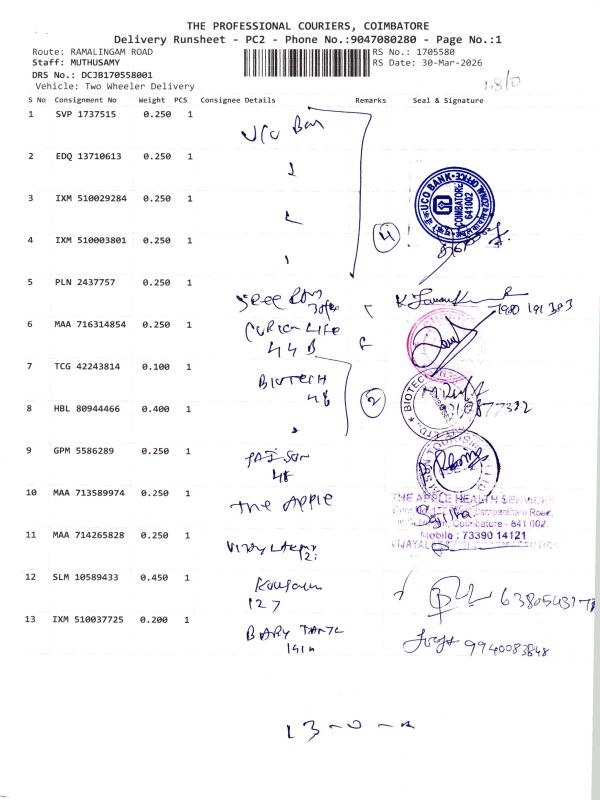 THE PROFESSIONAL COURIERS, COIMBATORE
Delivery Runsheet - PC2 - Phone No.:9047080280 - Page No.:1
Route: RAMALINGAM ROAD
RS No.: 1705580
Staff: MUTHUSAMY
RS Date: 30-Mar-2026
DRS No.: DCJB170558001
Vehicle: Two Wheeler Delivery
S No Consignment No Weight PCS Consignee Details Remarks Seal & Signature
1 SVP 1737515 0.250 1
2 EDQ 13710613 0.250 1
3 IXM 510029284 0.250 1
4 IXM 510003801 0.250 1
4
UCO BANK
COIMBATORE
641002
5 PLN 2437757 0.250 1
6 MAA 716314854 0.250 1
44B
7 TCG 42243814 0.100 1
BIOTECH
48
2
8 HBL 80944466 0.400 1
9 GPM 5586289 0.250 1
48
10 MAA 713589974 0.250 1
The Apple
THE APPLE HEALTH SERVICES
Coimbatore - 641 002.
Mobile : 73390 14121
11 MAA 714265828 0.250 1
12 SLM 10589433 0.450 1
127
13 IXM 510037725 0.200 1
9940083848
13-0-